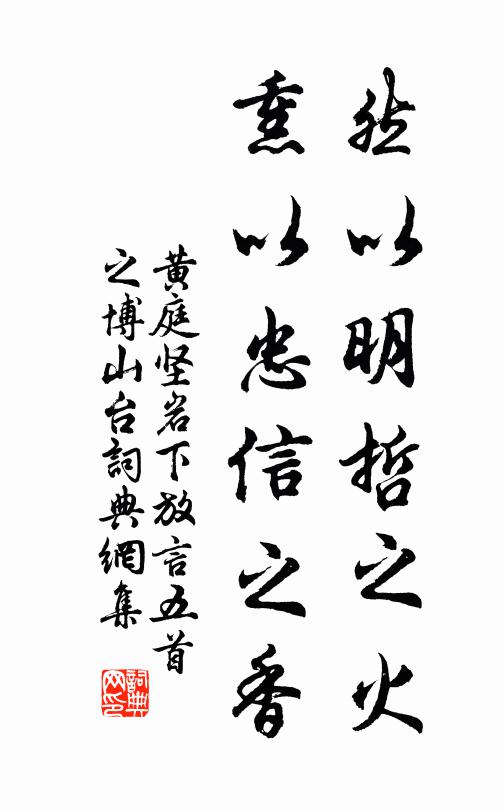 然以明哲之火
熏以忠信之香
黄庭坚岩下放言五首
之博山台詞典網集
詞典网印